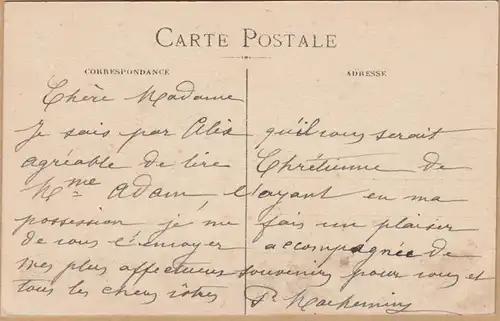 CARTE POSTALE
CORRESPONDANCE
ADRESSE
Chère Madame
Je sais par Alix qu'il vous serait
agréable de lire Chrétienne de
Mme Adam, l'ayant en ma
possession je me fais un plaisir
de vous l'envoyer accompagnée de
mes plus affectueux souvenirs pour vous et
tous les chers vôtres P.